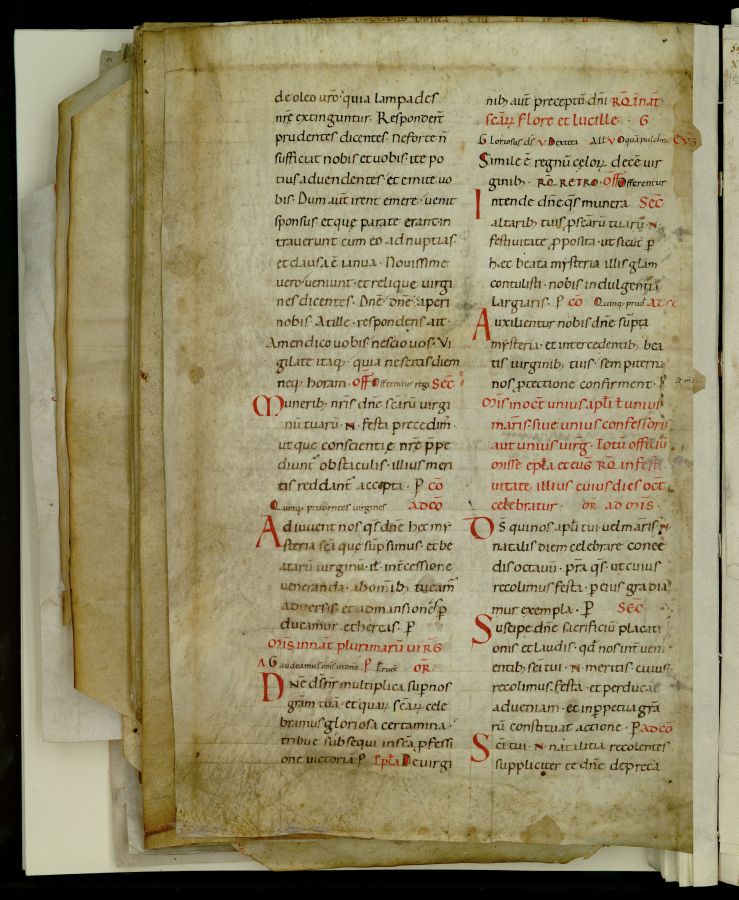 de oleo ur̄o· quia lampades
nr̄e extinguntur. Responder̄t
prudentes dicentes. Ne forte n̄
sufficiat nobis et uobis· ite po
tius ad uendentes· et emite uo
bis. Dum aut̄ irent emere· uenit
sponsus· et que parate erant· in
trauerunt cum eo ad nuptias·
et clausa ē ianua. Nouissime
uero ueniunt· et relique uirgi
nes dicentes. Dn̄e dn̄e· aperi
nobis. At ille· respondens ait·
Amen dico uobis nescio uos. Vi
gilate itaq;· quia nescitis diem
neq; horam· OFF Offerentur regi SEC̄
Munerib; nr̄is dn̄e sc̄arū uirgi
nū tuarū· N· festa precedim̄·
ut que conscientie nr̄e p̄pe
diunt̄ obstaculis· illius meri
tis reddant̄ accepta· P̱ CO
Quinq; prudentes uirgines AD CŌ
Adiuuent nos q̄s dn̄e hec mẏ
steria sc̄a que sūpsimus· et be
atarū uirginū· iƚƚ· int̄cessione
ueneranda· ab om̄ib; tueam̄
aduersis· et ad mansiones p̱
ducamur ethereas. P̱
MIS̄ IN NAT̄ PLURIMARŪ VIRG
A Gaudeamus om̄s in dn̄o P̱
DNE ds̄ nr̄ multiplica sup̱ nos
grām tuā· et quarū sc̄arū cele
bramus gloriosa certamina·
tribue subsequi in sc̄a p̱fessi
one uictoriā P̱ Ep̄ƚa De uirgi
nib; aut̄ preceptū dn̄i RQ̄ IN NAT̄
sc̄arū Flore et Lucille· G
Gloriosus ds̄ V Dextera All V O quā pulchra EVḠ
Simile ē regnū celorū decē uir
ginib;· RQ̄ RETRO· OFF Offerentur
Intende dn̄e q̄s munera SEC̄
altarib; tuis p̱ sc̄arū tuarū N·
festiuitate p̱posita· ut sicut p̱
hec beata mẏsteria illis glām
contulisti· nobis indulgentiā
largiaris. P̱ CO Quinq; prud AD CO
Auxilientur nobis dn̄e sūpta
mẏsteria· et intercedentib; bea
tis uirginib; tuis· sempiterna
nos p̱tectione confirment· P̱
MIS̄ in oct̄ unius ap̄ƚi ƚ unius
mar̄is· siue unius confessoris
aut unius uirg̅· Totū officiū
misse ep̄ƚa et eūḡ RQ̄ in festi
uitate illius cuius dies oct̄
celebratur· OR̄ AD MIS̄
Ds̄ qui nos ap̄ƚi tui uel mar̄is N·
natalis diem celebrare conce
dis octauū· pr̄a q̄s· ut cuius
recolimus festa· p̱ eius gradia
mur exempla· P̱ SEC̄
Suscipe dn̄e sacrificiū placati
onis et laudis· qd̄ nos int̄ueni
entib; sc̄i tui· N· meritis· cuius
recolimus festa· et perducat
ad ueniam· et in p̱petua grā
rū constituat actione· P̱ AD CŌ
Sc̄i tui· N· natalitia recolentes
suppliciter te dn̄e depreca